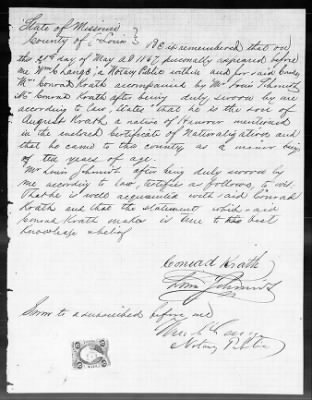 State of Missouri
County of St Louis } Be it remembered that on
the 21st day of May A.D. 1867, personally appeared before
me Wm C Lange, a Notary Public within and for said County
Mr Conrad Krath accompanied by Mr Louis Schmidt
Sd Conrad Krath after being duly sworn by me
according to law, states that he is the son of
August Krath, a native of Hanover mentioned
in the inclosed Certificate of Nationalization and
that he came to this country as a minor being
of ten years of age.
Mr Louis Schmidt after being duly sworn by
me according to law, testifies as follows, to wit:
That he is well acquainted with said Conrad
Krath and that the statement which said
Conrad Krath makes is true to the best
knowledge & belief
Conrad Krath
Louis Schmidt
Sworn to & subscribed before me
Notary Public